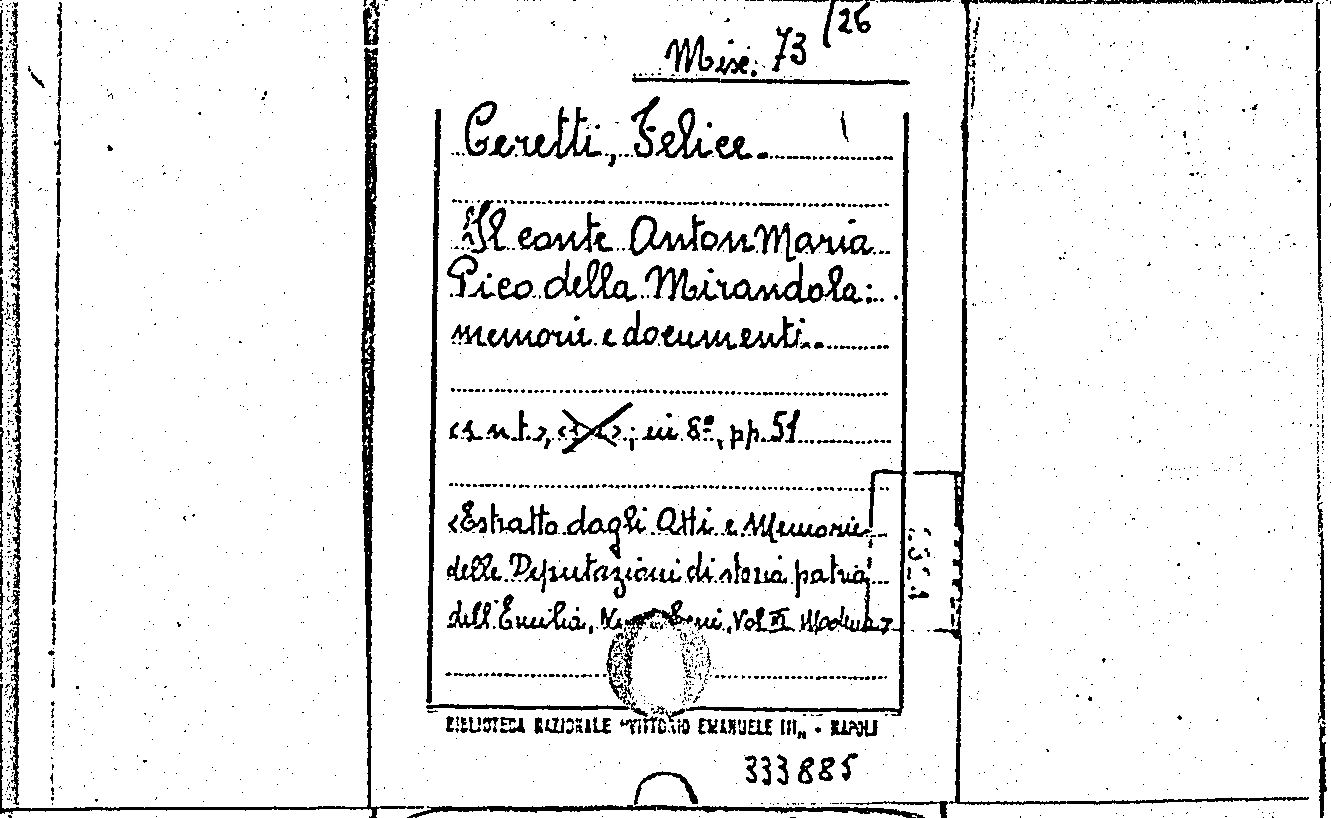 Misc. 73 /26
Ceretti, Felice.
Il conte Anton Maria
Pico della Mirandola:
memorie e documenti.
<s. n. t.>, ; in 8º, pp. 51
<Estratto dagli Atti e Memorie
delle Deputazioni di storia patria
dell'Emilia, Vol. Modena>
BIBLIOTECA NAZIONALE "VITTORIO EMANUELE III" - NAPOLI
333885